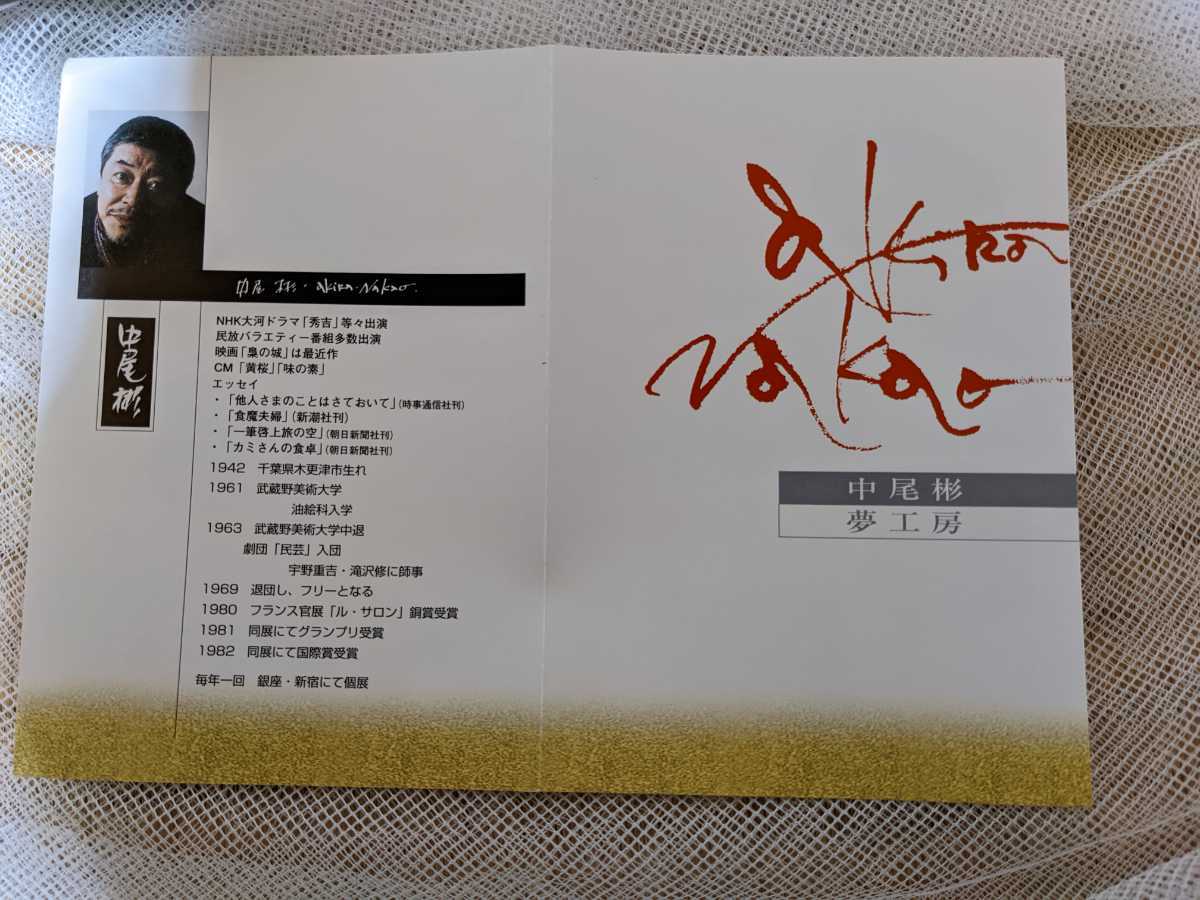 中尾 彬・akira・Nakao.
中尾彬
NHK大河ドラマ「秀吉」等々出演
民放バラエティー番組多数出演
映画「梟の城」は最近作
CM「黄桜」「味の素」
エッセイ
・「他人さまのことはさておいて」(時事通信社刊)
・「食魔夫婦」(新潮社刊)
・「一筆啓上旅の空」(朝日新聞社刊)
・「カミさんの食卓」(朝日新聞社刊)
1942 千葉県木更津市生れ
1961 武蔵野美術大学
油絵科入学
1963 武蔵野美術大学中退
劇団「民芸」入団
宇野重吉・滝沢修に師事
1969 退団し、フリーとなる
1980 フランス官展「ル・サロン」銅賞受賞
1981 同展にてグランプリ受賞
1982 同展にて国際賞受賞
毎年一回 銀座・新宿にて個展
akira
nakao
中尾彬
夢工房